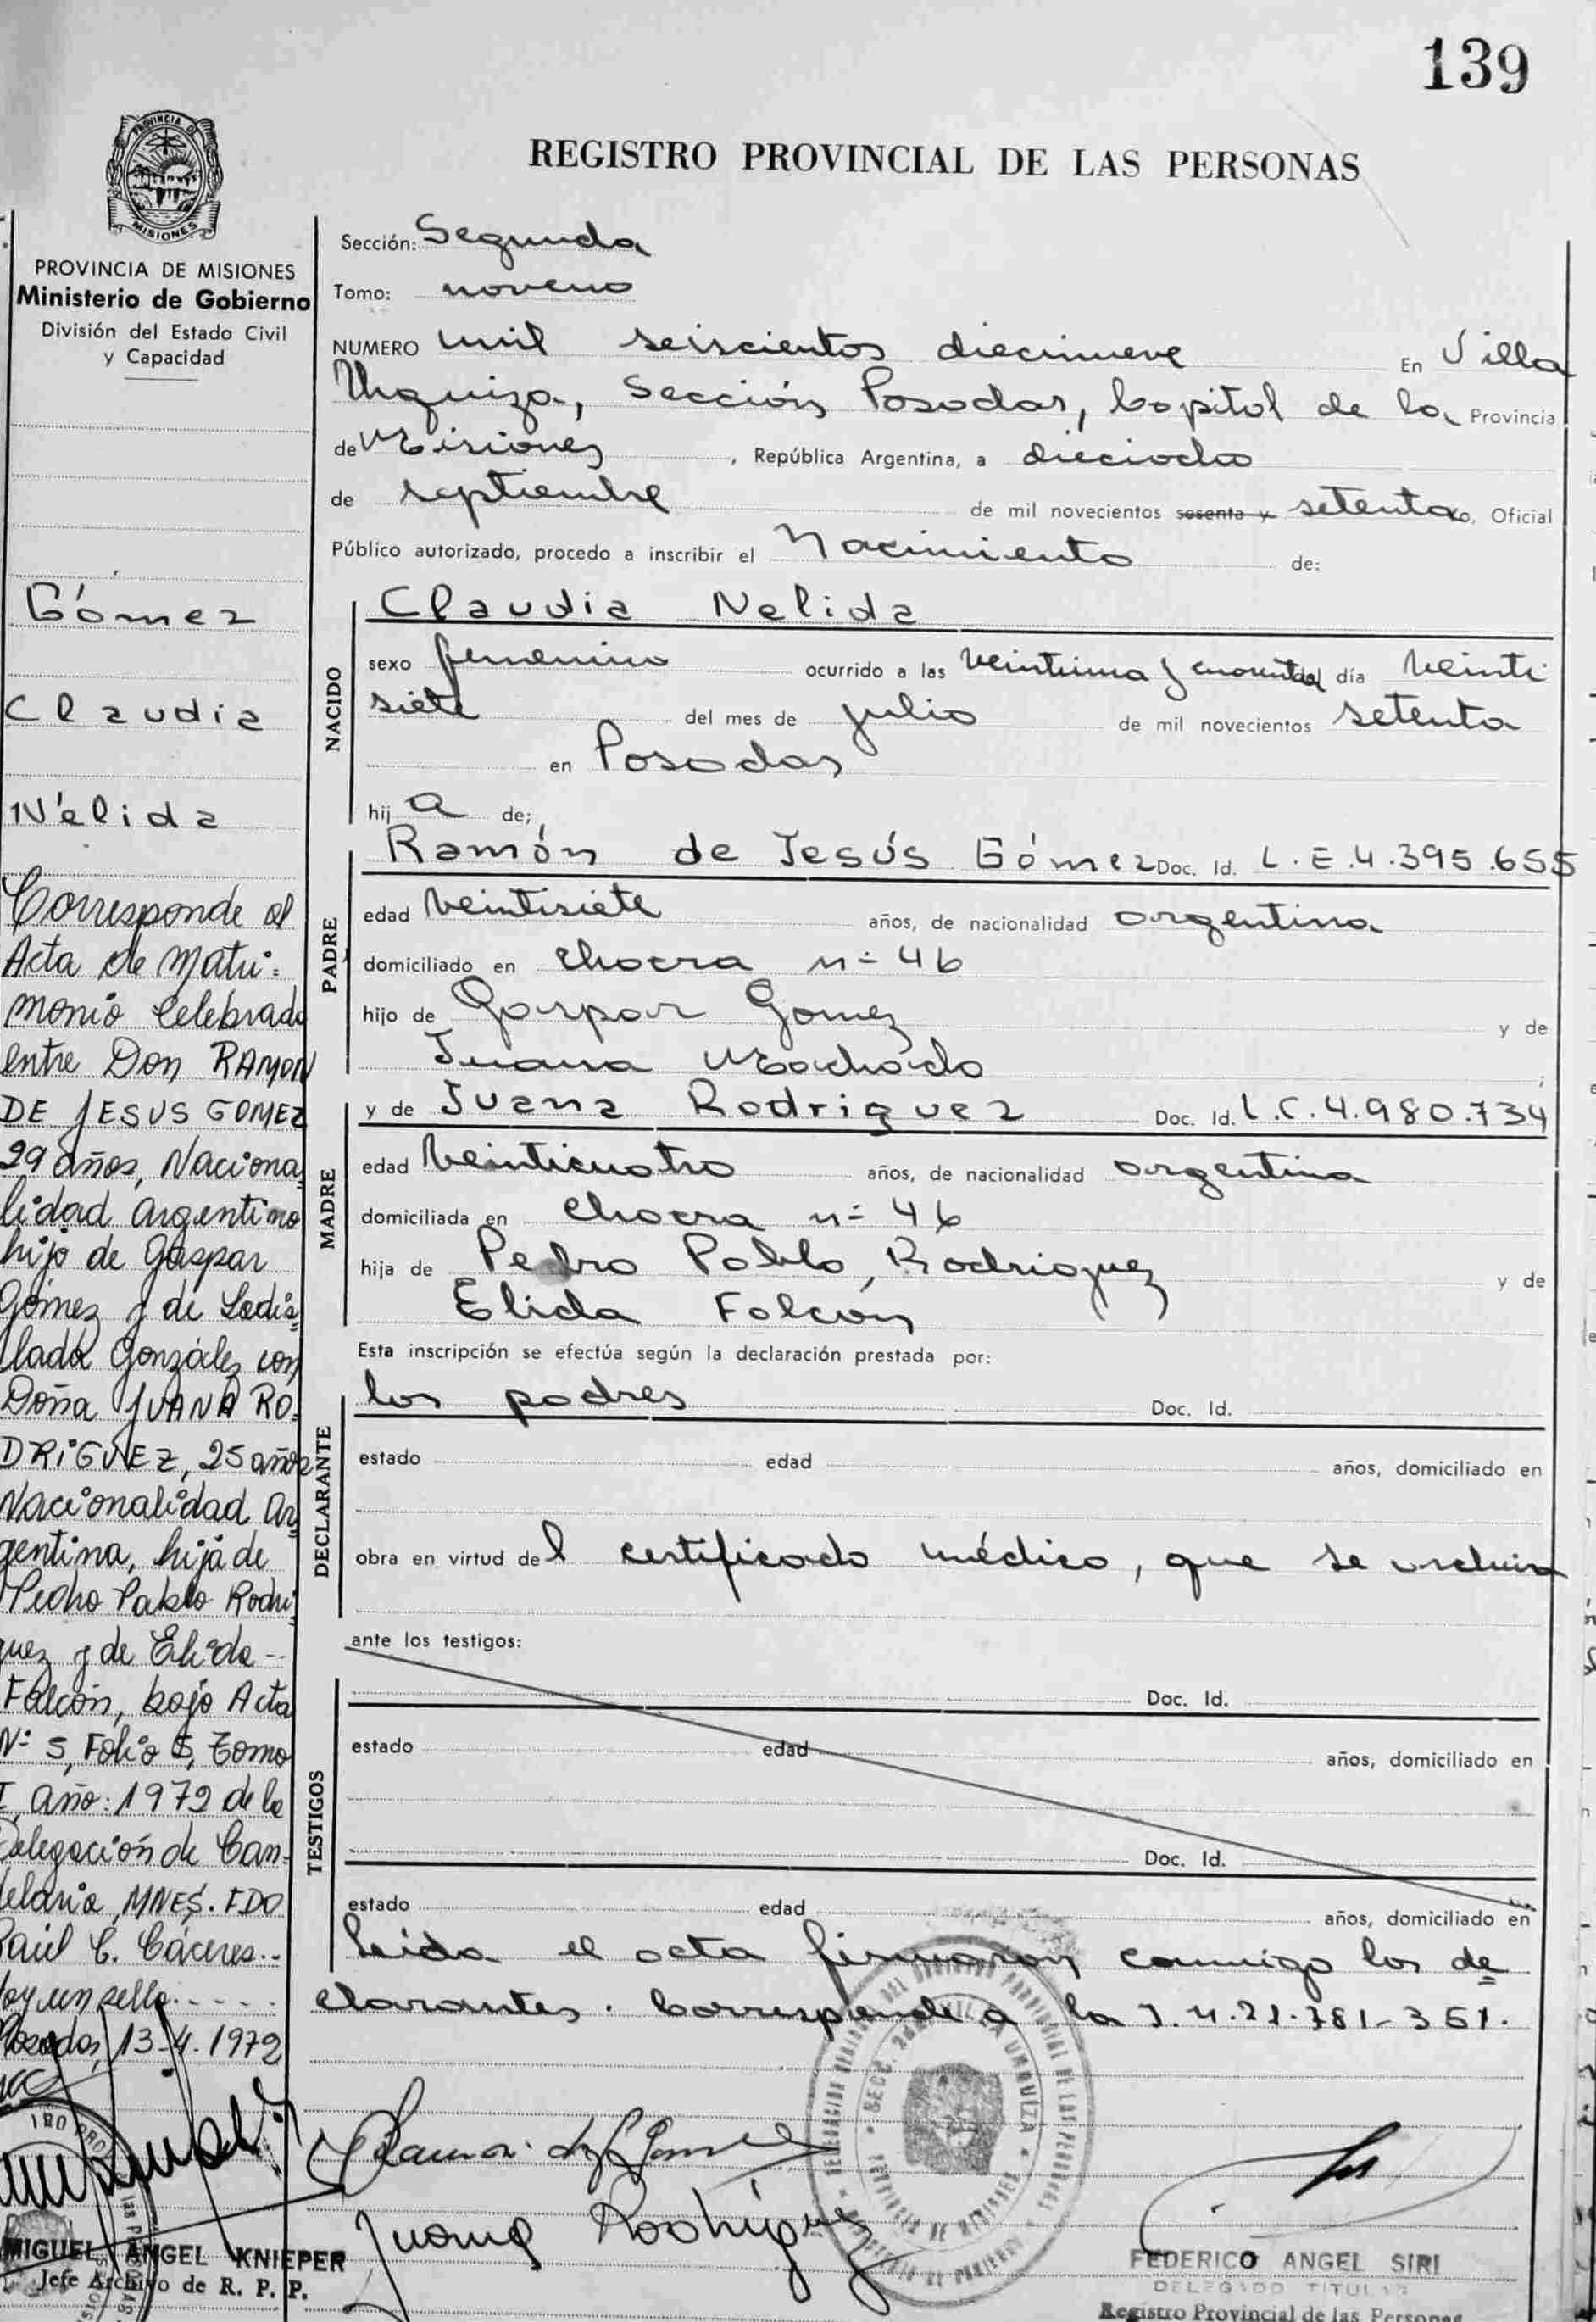 139
REGISTRO PROVINCIAL DE LAS PERSONAS
PROVINCIA DE
MISIONES
PROVINCIA DE MISIONES
Ministerio de Gobierno
División del Estado Civil
y Capacidad
Gómez
Claudia
Nélida
Corresponde al
Acta de Matri-
monio Celebrado
entre Don RAMON
DE JESUS GOMEZ
29 años, Naciona
lidad argentino
hijo de Gaspar
Gómez y de Ladis-
lada González con
Doña JUANA RO-
DRIGUEZ, 25 años
Nacionalidad Ar
gentina, hija de
Pedro Pablo Rodri
guez y de Elida --
Falcón, bajo Acta
Nº 5, Folio 5, Tomo
I, año: 1972 de la
Delegación de Can-
delaria, MNES. FDO
Raúl C. Cáceres.--
Hay un sello. - - - -
Posadas, 13-4-1972
MIGUEL ANGEL KNIEPER
Jefe Archivo de R. P. P.
Sección: Segunda
Tomo: noveno
NUMERO mil seiscientos diecinueve En Villa
Urquiza, Sección Posadas, Capital de la Provincia
de Misiones, República Argentina, a dieciocho
de septiembre de mil novecientos sesenta y setenta, Oficial
Público autorizado, procedo a inscribir el Nacimiento de:
NACIDO
Claudia Nelida
sexo femenino ocurrido a las veintiuna y cuarenta día veinti
siete del mes de julio de mil novecientos setenta
en Posadas
hij a de;
PADRE
Ramón de Jesús Gómez Doc. Id. L.E.4.395.655
edad veintisiete años, de nacionalidad argentina
domiciliado en chacra nº 46
hijo de Gaspar Gomez y de
Juana Machado ;
MADRE
y de Juana Rodriguez Doc. Id. L.C.4.980.734
edad veinticuatro años, de nacionalidad argentina
domiciliada en chacra nº 46
hija de Pedro Pablo Rodriguez y de
Elida Falcón
Esta inscripción se efectúa según la declaración prestada por:
DECLARANTE
los padres Doc. Id.
estado edad años, domiciliado en
obra en virtud del certificado médico, que se archiva
ante los testigos:
TESTIGOS
Doc. Id.
estado edad años, domiciliado en
Doc. Id.
estado edad años, domiciliado en
Leida el acta firmaron conmigo los de
clarantes. Corresponde a la I.N.21.781-361.
Juana Rodriguez
FEDERICO ANGEL SIRI
DELEGADO TITULAR
Registro Provincial de las Personas